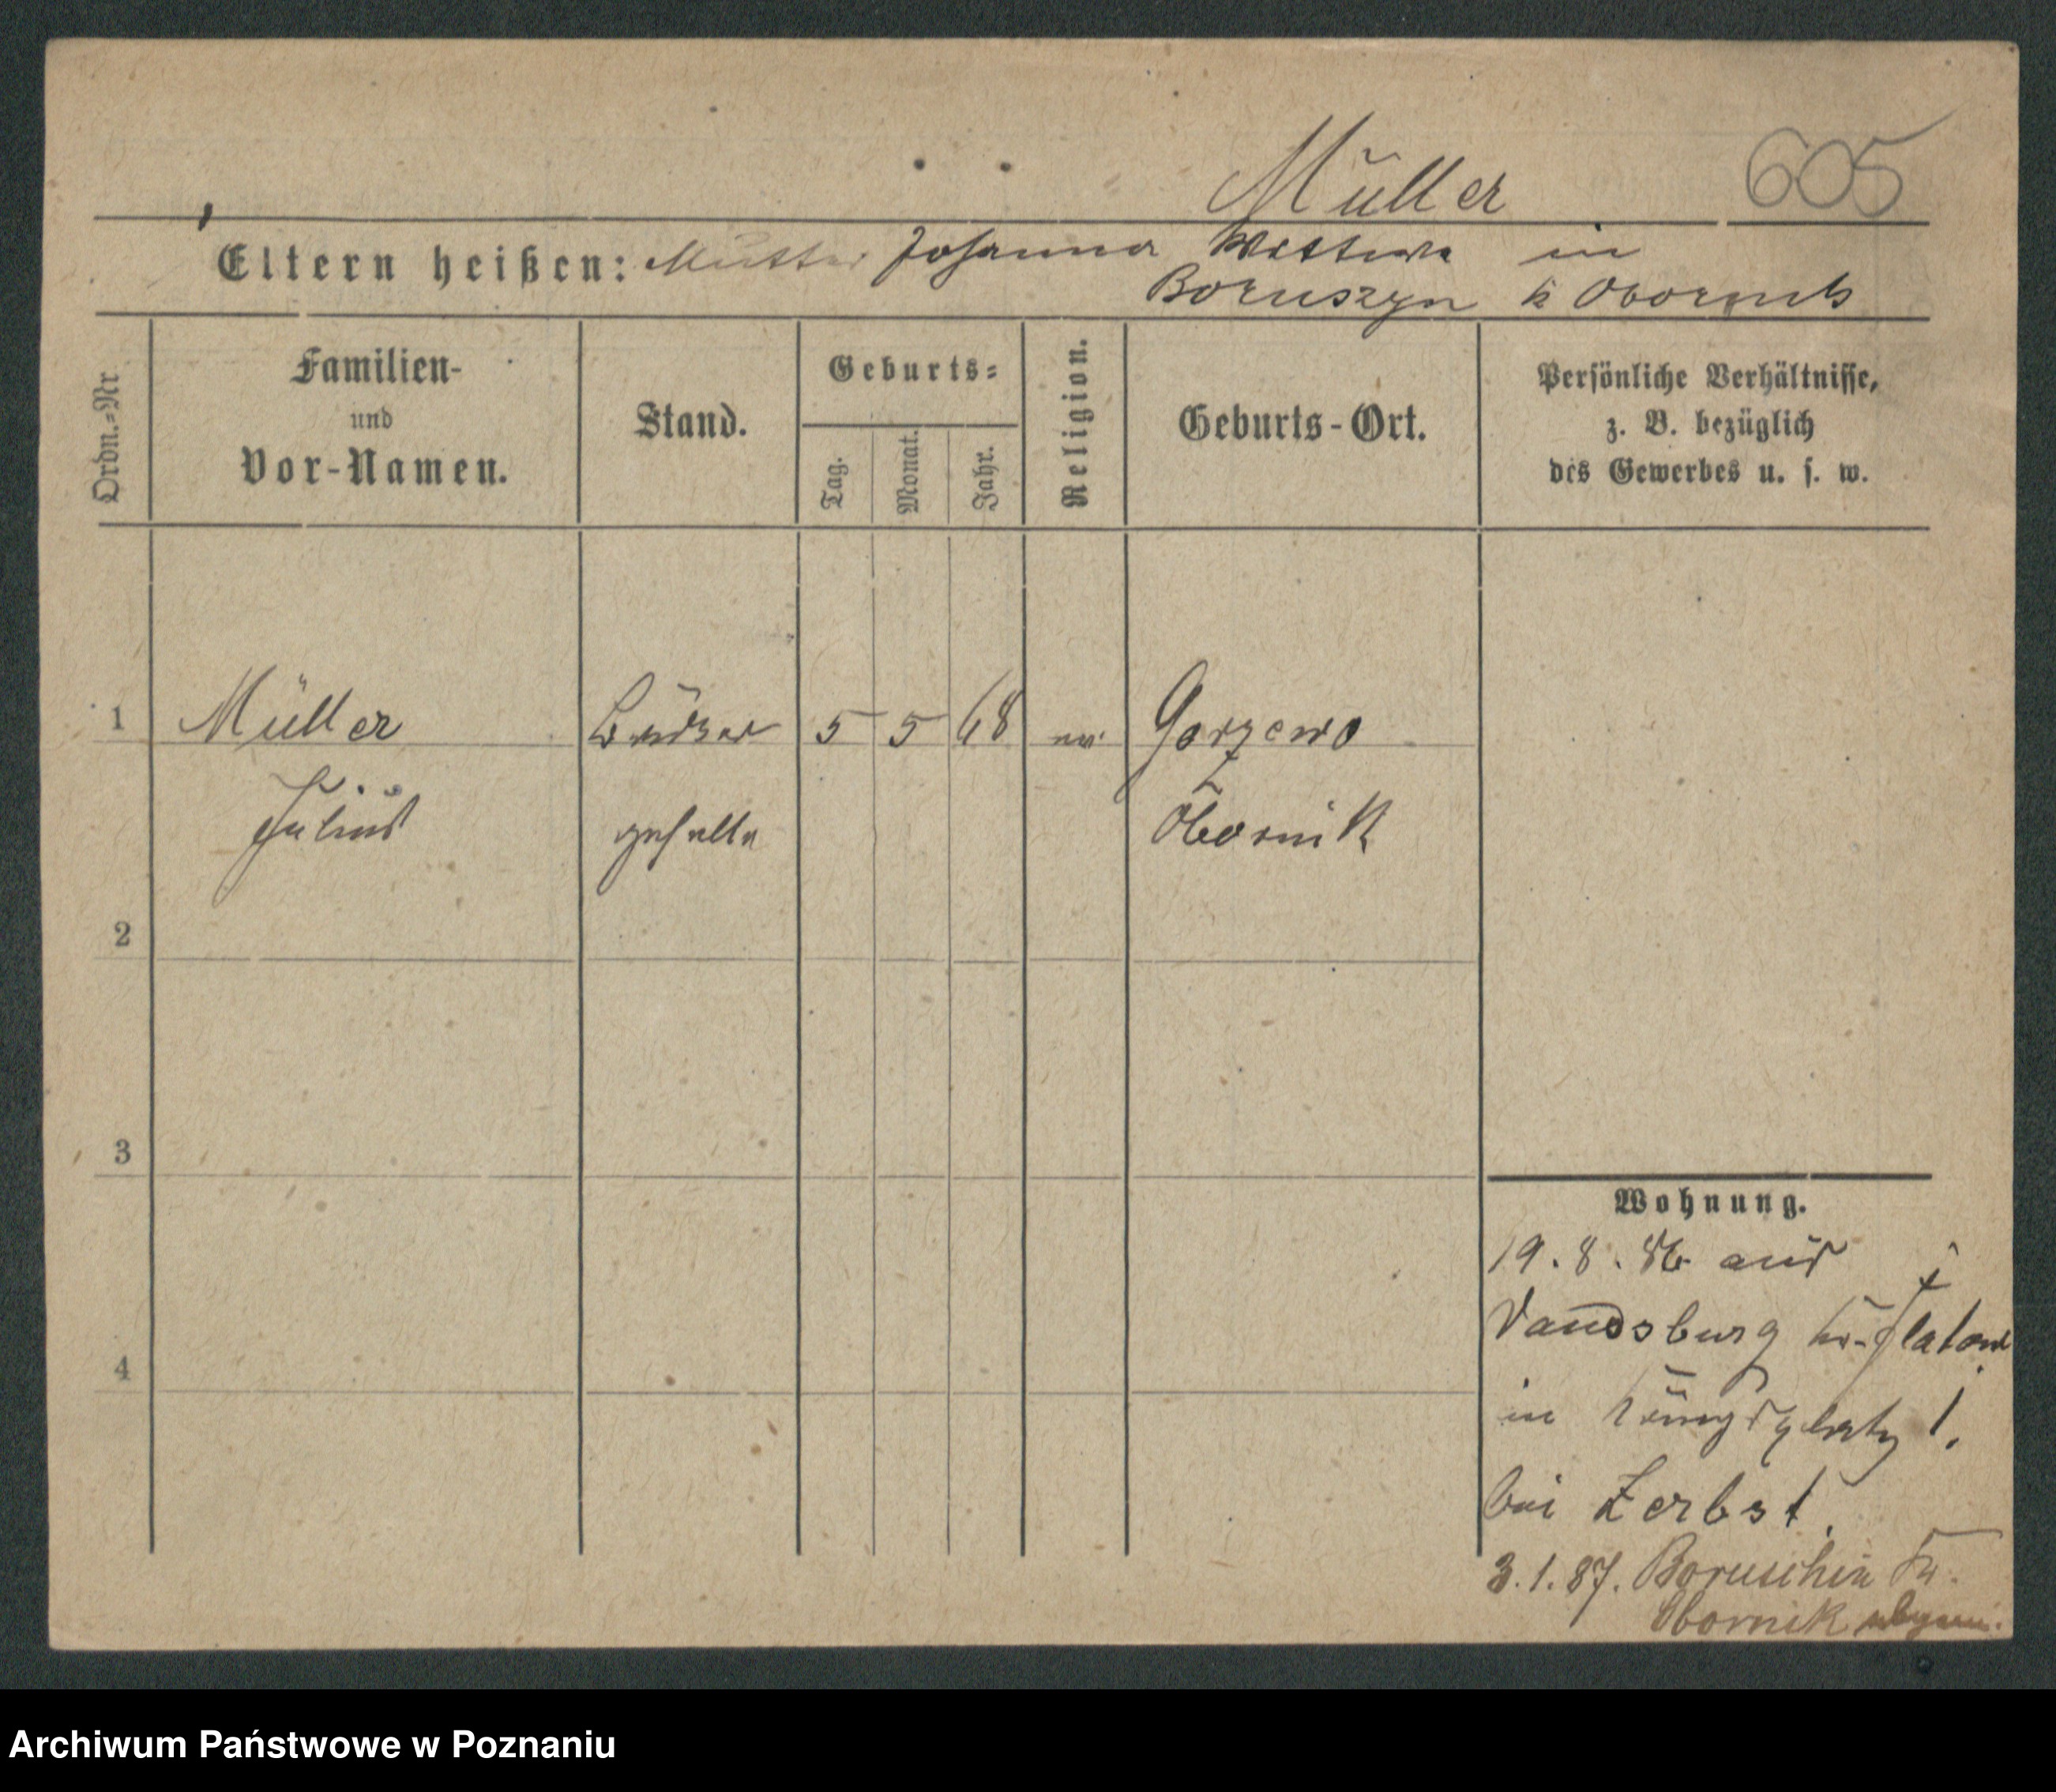 Müller 605
Eltern heißen: Mutter Johanna Wittwe in
Boruszyn k Obornik
Ordn.=Nr
Familien-
und
Vor-Namen.
Stand.
Geburts=
Tag.
Monat.
Jahr.
Religion.
Geburts-Ort.
Persönliche Verhältnisse,
z. B. bezüglich
des Gewerbes u. s. w.
1 Müller 5 5 68 ev. Gorzewo
Julius geselle Obornik
2
3
4
Wohnung.
19.8.86 aus
Vandsburg Kr. Flatow
in Königsplatz 1.
bei Zerbst.
3.1.87. Boruschin Kr.
Obornik
Archiwum Państwowe w Poznaniu